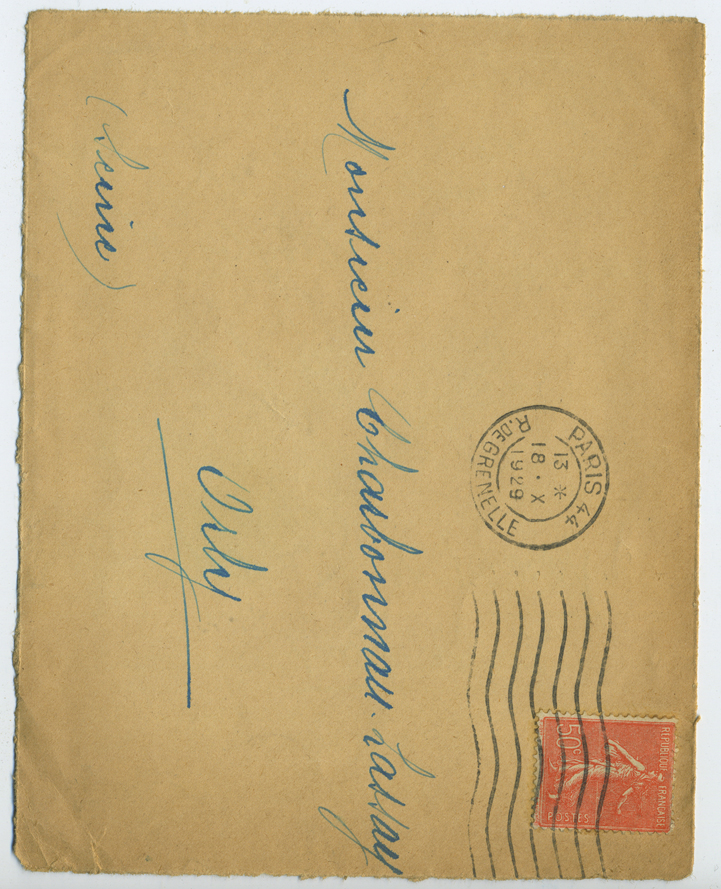 PARIS 44
13 *
18 . X
1929
R. DE GRENELLE
REPUBLIQUE FRANÇAISE
50c
POSTES
Monsieur Charbonneau-Lassay
Orly
(Seine)